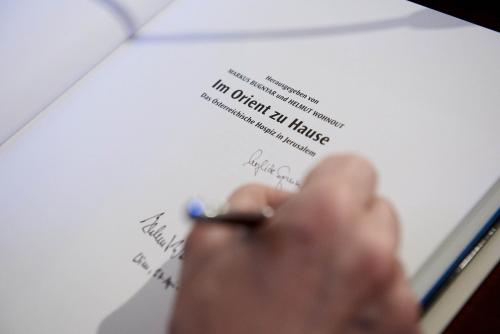 Herausgegeben von
MARKUS BUGNYAR und HELMUT WOHNOUT
Im Orient zu Hause
Das Österreichische Hospiz in Jerusalem